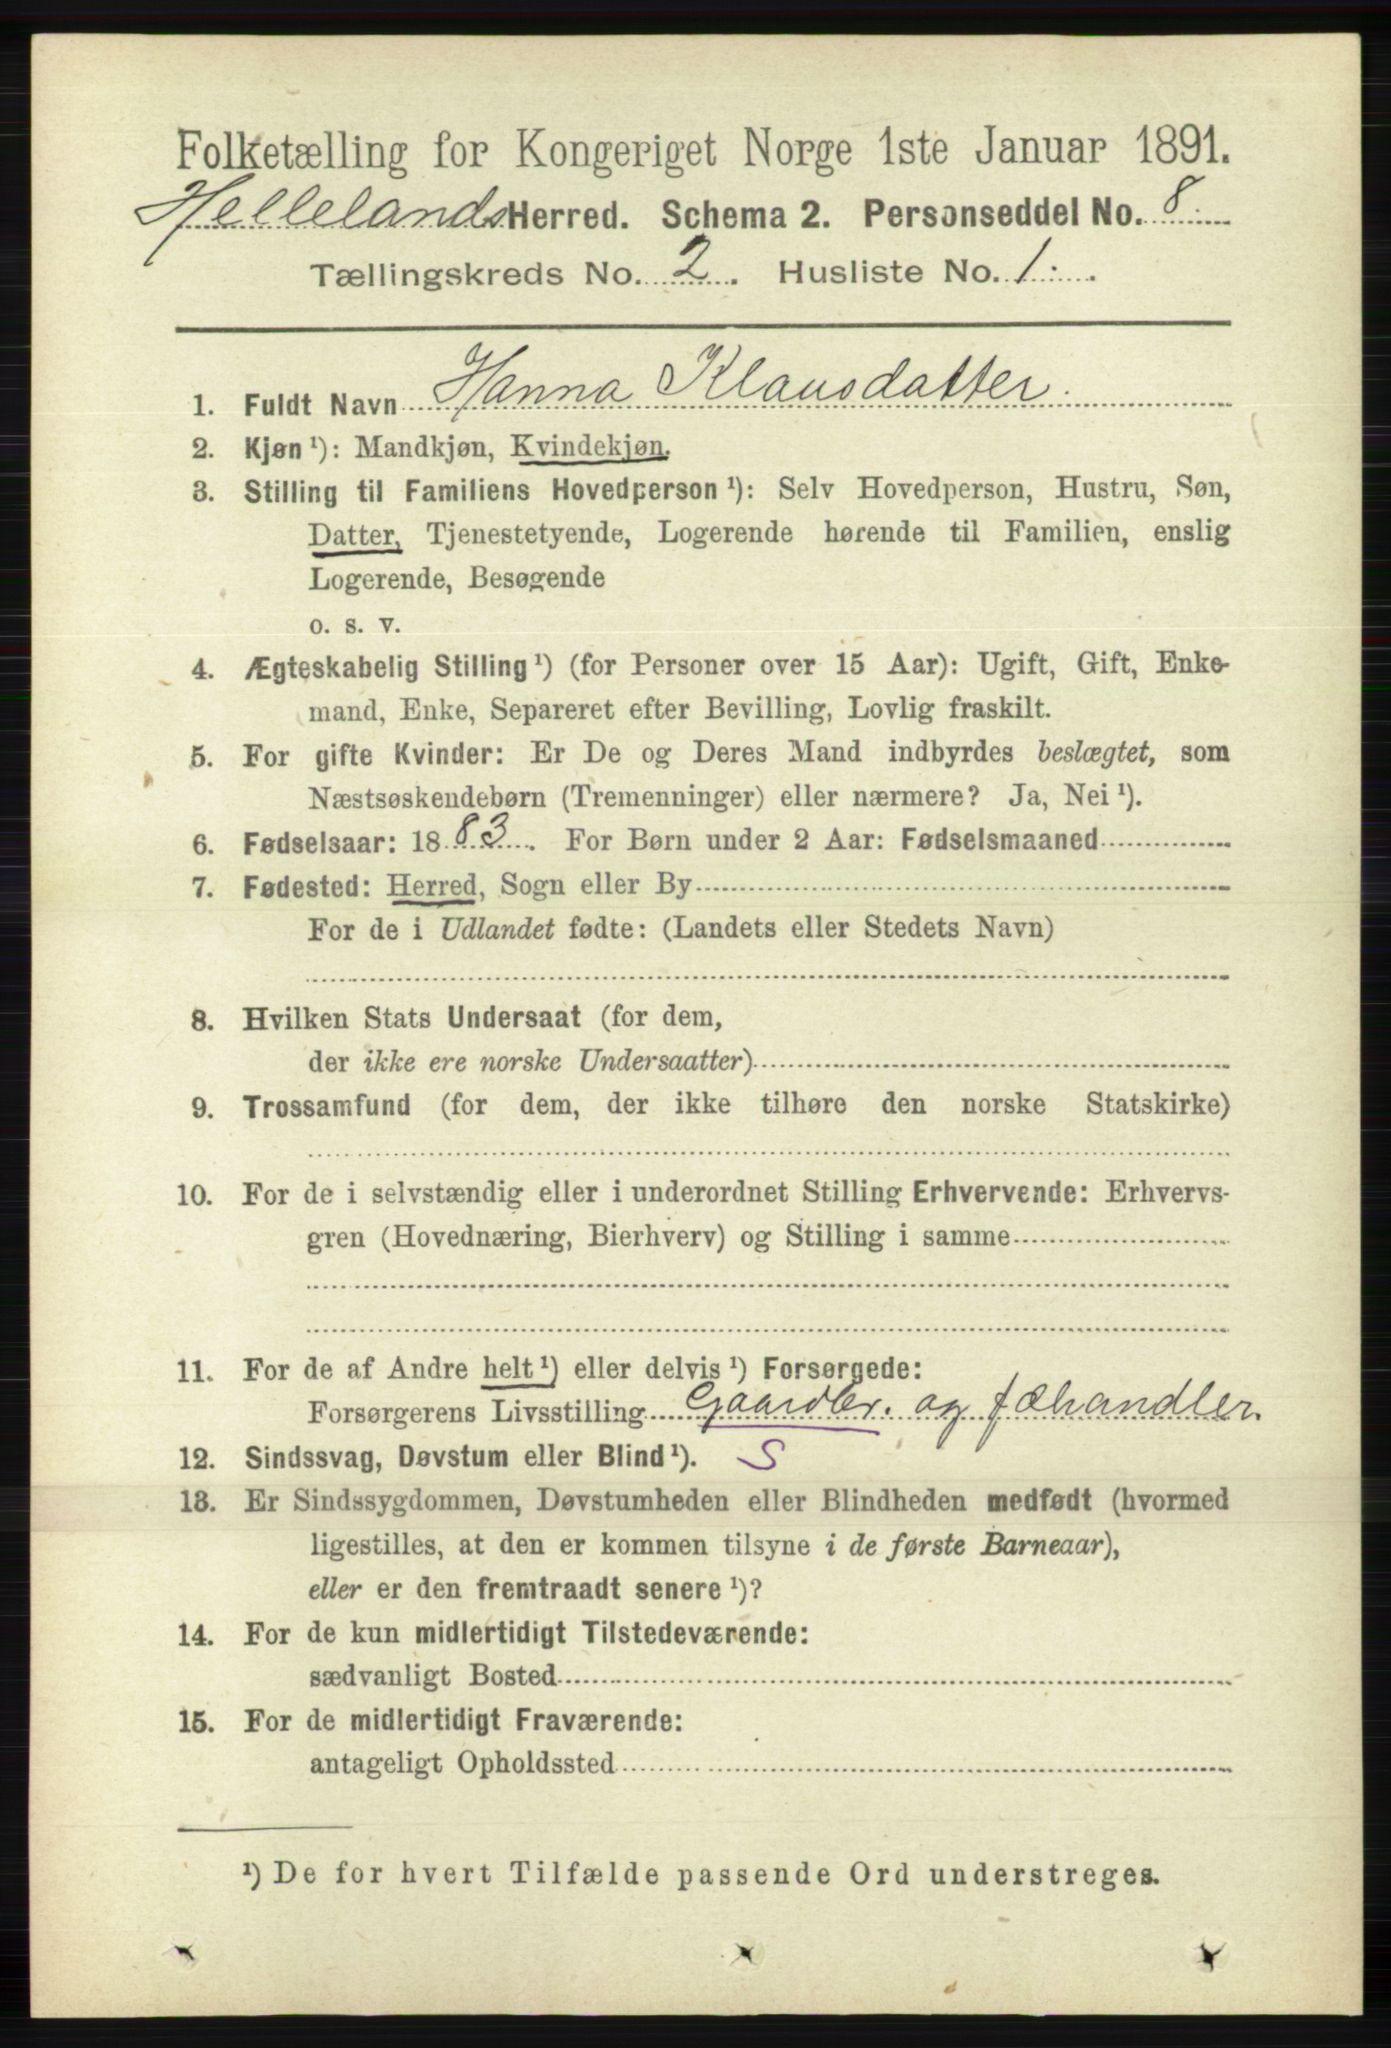 Folketælling for Kongeriget Norge 1ste Januar 1891.
Hellelands Herred. Schema 2. Personseddel No. 8
Tællingskreds No. 2. Husliste No. 1.
1. Fuldt Navn Hanna Klausdatter.
2. Kjøn ¹): Mandkjøn, Kvindekjøn.
3. Stilling til Familiens Hovedperson ¹): Selv Hovedperson, Hustru, Søn,
Datter, Tjenestetyende, Logerende hørende til Familien, enslig
Logerende, Besøgende
o. s. v.
4. Ægteskabelig Stilling ¹) (for Personer over 15 Aar): Ugift, Gift, Enke-
mand, Enke, Separeret efter Bevilling, Lovlig fraskilt.
5. For gifte Kvinder: Er De og Deres Mand indbyrdes beslægtet, som
Næstsøskendebørn (Tremenninger) eller nærmere? Ja, Nei ¹).
6. Fødselsaar: 1883. For Børn under 2 Aar: Fødselsmaaned
7. Fødested: Herred, Sogn eller By
For de i Udlandet fødte: (Landets eller Stedets Navn)
8. Hvilken Stats Undersaat (for dem,
der ikke ere norske Undersaatter)
9. Trossamfund (for dem, der ikke tilhøre den norske Statskirke)
10. For de i selvstændig eller i underordnet Stilling Erhvervende: Erhvervs-
gren (Hovednæring, Bierhverv) og Stilling i samme
11. For de af Andre helt ¹) eller delvis ¹) Forsørgede:
Forsørgerens Livsstilling Gaardbr. og fæhandler.
12. Sindssvag, Døvstum eller Blind ¹). S
13. Er Sindssygdommen, Døvstumheden eller Blindheden medfødt (hvormed
ligestilles, at den er kommen tilsyne i de første Barneaar),
eller er den fremtraadt senere ¹)?
14. For de kun midlertidigt Tilstedeværende:
sædvanligt Bosted
15. For de midlertidigt Fraværende:
antageligt Opholdssted
¹) De for hvert Tilfælde passende Ord understreges.